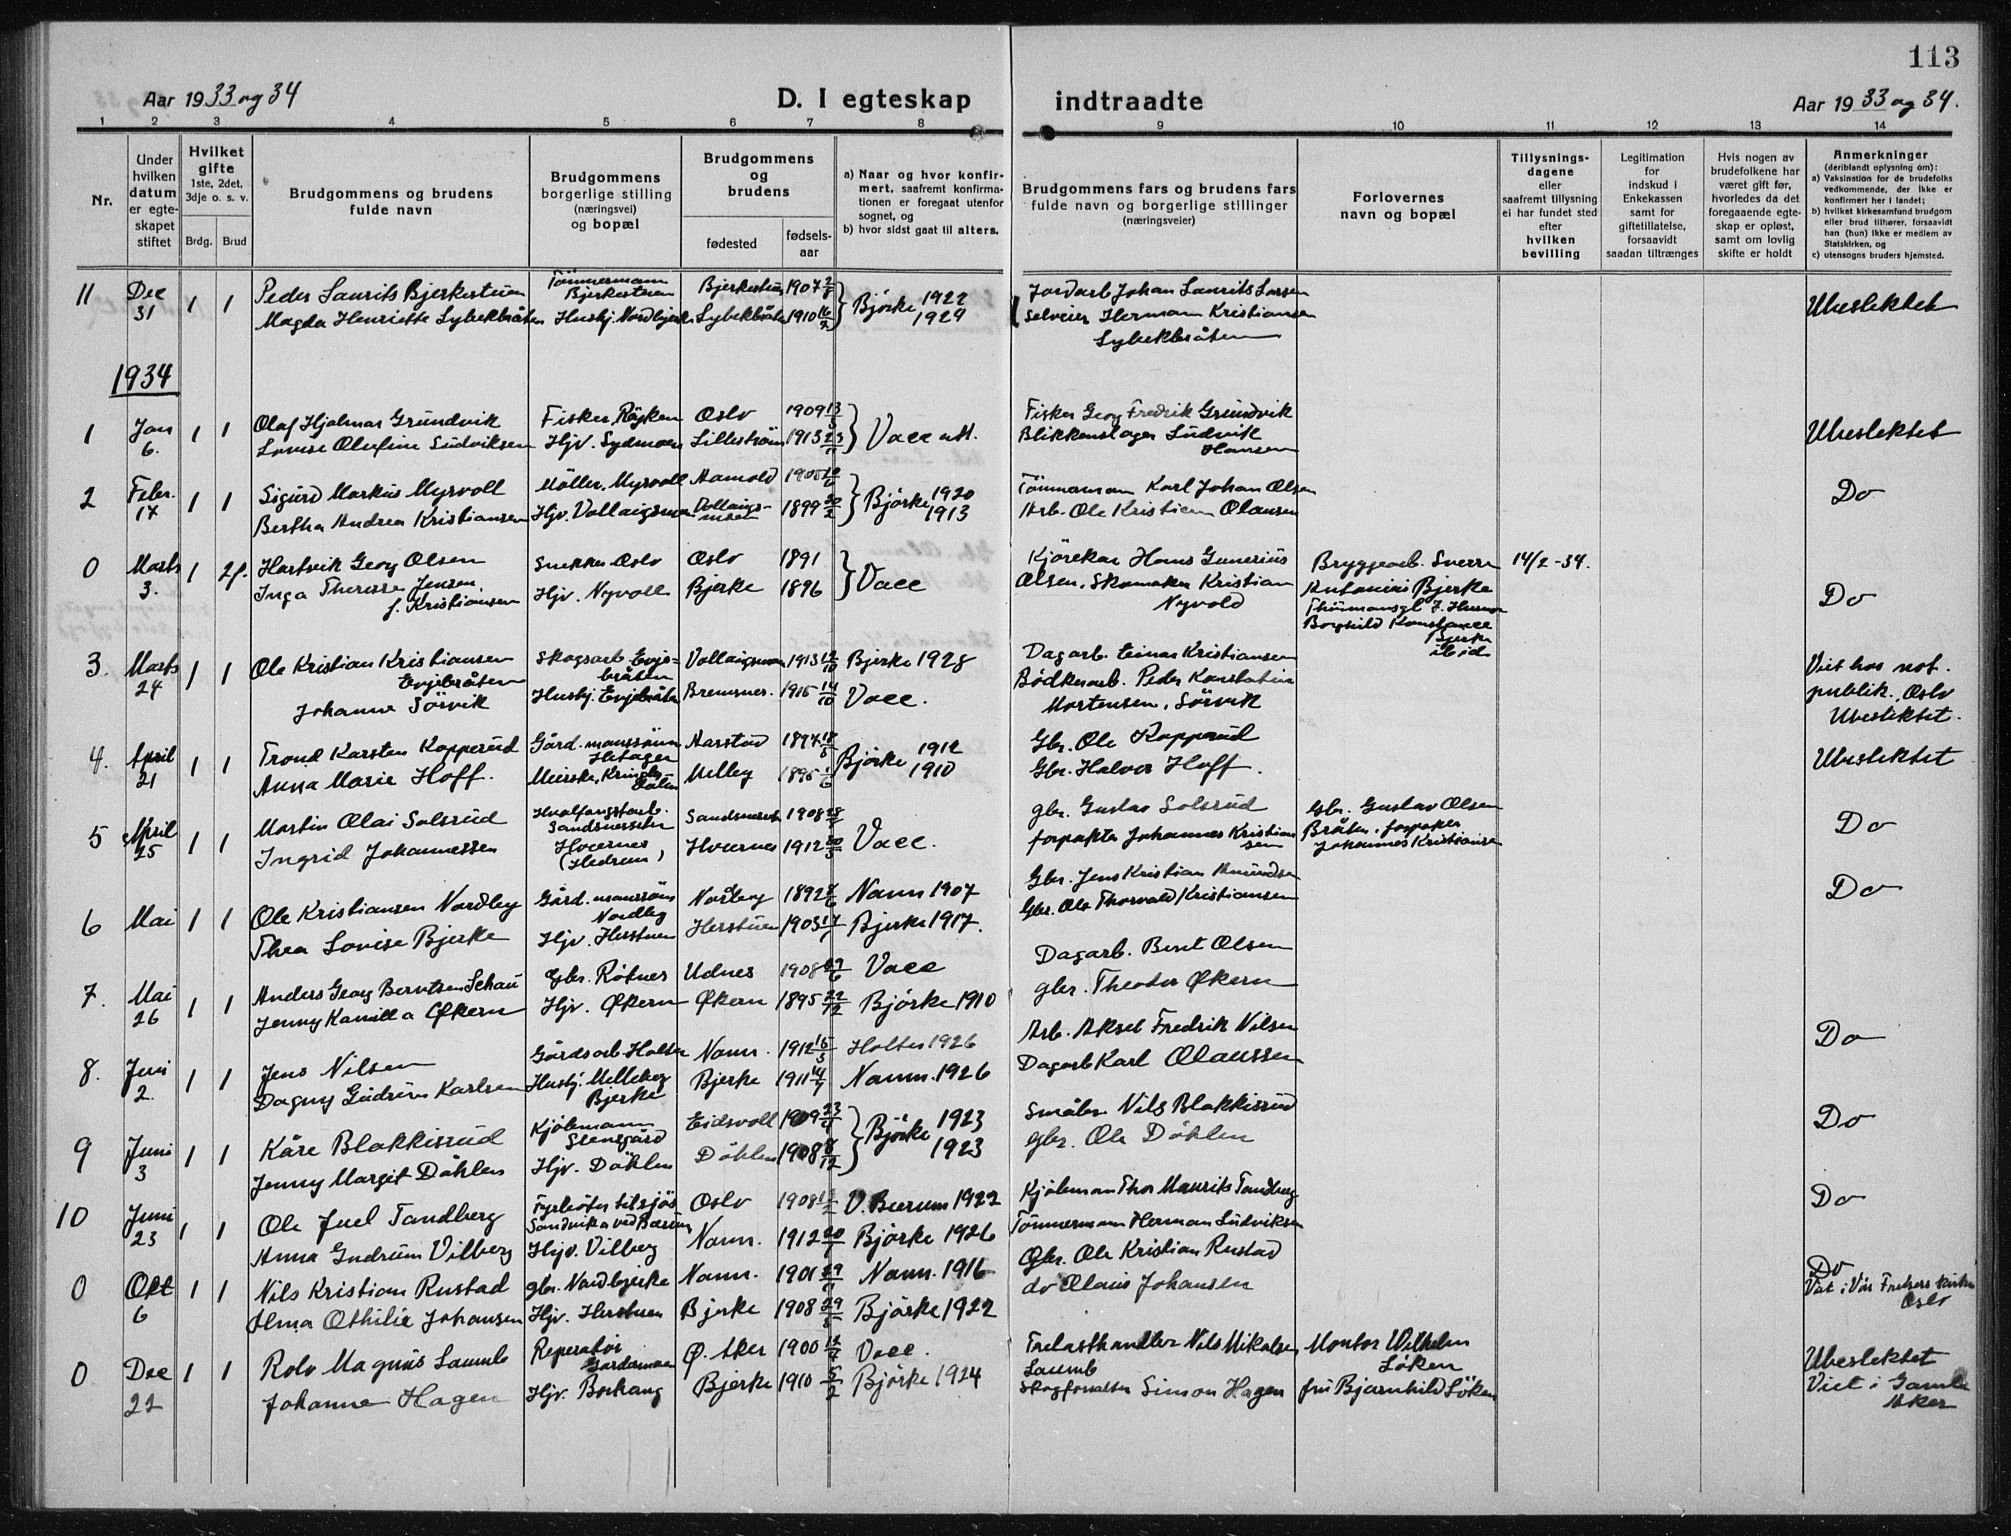 113
Aar 1933 og 34
D. I egteskap
indtraadte
Aar 1933 og 34.
1 2 3 4 5 6 7 8 9 10 11 12 13 14
Nr.
Under hvilken datum er egteskapet stiftet
Hvilket gifte 1ste, 2det, 3dje o. s. v.
Brdg. Brud
Brudgommens og brudens fulde navn
Brudgommens borgerlige stilling (næringsvei) og bopæl
Brudgommens og brudens
fødested
fødselsaar
a) Naar og hvor konfirmert, saafremt konfirmationen er foregaat utenfor sognet, og
b) hvor sidst gaat til alters.
Brudgommens fars og brudens fars fulde navn og borgerlige stillinger (næringsveier)
Forlovernes navn og bopæl
Tillysningsdagene eller saafremt tillysning ei har fundet sted efter hvilken bevilling
Legitimation for indskud i Enkekassen samt for giftetillatelse, forsaavidt saadan tiltrænges
Hvis nogen av brudefolkene har været gift før, hvorledes da det foregaaende egteskap er opløst, samt om lovlig skifte er holdt
Anmerkninger (deriblandt oplysning om):
a) Vaksination for de brudefolks vedkommende, der ikke er konfirmert her i landet;
b) hvilket kirkesamfund brudgom eller brud tilhører, forsaavidt han (hun) ikke er medlem av Statskirken, og
c) utensogns bruders hjemsted.
11 Dec 31 1 1 Peder Laurits Bjerkestuen Tømmermann Bjerkestuen Bjerkestuen 1907 Bjørke 1922 Jordarb Johan Laurits Larsen Ubeslektet
Magda Henriette Lybekbråten Husbj. Nordbjerke Lybekbråten 1910 16/7 1924 Selveier Herman Kristiansen
Lybekbråten
1934
1 Jan 6. 1 1 Olaf Hjalmar Grundvik Fisker, Røyken Oslo 1909 Vacc att. Fisker Georg Fredrik Grundvik Ubeslektet
Lovise Olufine Ludviksen Hjv. Sydmoen Lillestrøm 1913 Blikkenslager Ludvik
Hansen
2 Febr. 17 1 1 Sigurd Markus Myrvoll Møller, Myrvoll Aamold 1905 Bjørke 1920 Tømmermann Karl Johan Olsen Do
Bertha Andrea Kristiansen Hjv. 1899 20/2 1913 Arb. Ole Kristian Olausen
0 Marts 3. 1 2f. Hartvik Georg Olsen Snekker Oslo Oslo 1891 Vacc Kjørekar Hans Gunerius Bryggearb. Sverre 14/2-34.
Inga Therese Jensen, Hjv. Nyvoll Bjerke 1896 Olsen, Skomaker Kristian Antonius Bjerke Do
f. Kristiansen Nyvold
Borghild Konstance
Bjerke
ibid
3. Marts 24 1 1 Ole Kristian Kristiansen Skogsarb. Evje- 1913 12/10 Bjerke 1928 Dagarb. Einar Kristiansen Viet hos not.
Evjebråten bråten Bødkerarb. Peder Konstatin publik. Oslo
Johanne Sørvik Husbj. Evjebråten Bremsnes. 1915 14/10 Vacc. Mortensen, Sørvik Ubeslektet.
4. April 21 1 1 Trond Karsten Kopperud Gård. manssønn Aarstad 1894 Bjørke 1912 Gbr. Ole Kopperud Ubeslektet
Anna Marie Hoff. Meierske, Kringlerdalen Melby 1895 1910 Gbr. Halvor Hoff.
5 April 25 1 1 Martin Olai Solsrud Hvalfangstarb. Sandsneseter 1908 Vacc. gbr. Gustav Solsrud Gbr. Gustav Olsen Do
Ingrid Johannessen Hvernes (Hedrum) Hvernes 1912 forpakter Johannes Kristiansen Bråten, forpakter
Johannes Kristiansen
6 Mai 1 1 Ole Kristiansen Nordby Gård. manssønn Nordby Nordby 1892 Nann 1907 Gbr. Jens Kristian Amundsen Do
Thea Lovise Bjerke Hjv. Herstuen Herstuen 1903 Bjerke 1917. Gbr. Ole Thorvald Kristiansen
7. Mai 26 1 1 Anders Georg Berntsen Schau Gbr. Røtnes Udnes 1908 Vacc Dagarb. Bernt Olsen
Jenny Kamilla Økern Hjv. Økern Økern 1895 22/12 Bjørke 1910 gbr. Theodor Økern
8. Juni 2. 1 1 Jens Nilsen Gårdsarb Holter Nann. 1912 Holter 1926 Arb. Aksel Fredrik Nilsen Do
Dagny Gudrun Karlsen Husbj. Melleby Bjerke Bjerke 1911 14/7 Nann. 1926 Dagarb Karl Olaussen
9 Juni 3 1 1 Kåre Blakkisrud Kjøbmann Stensgård Eidsvoll 1909 Bjørke 1923 Småbr. Nils Blakkisrud Do
Jenny Margit Døhlen Hjv. Døhlen Døhlen 1908 8/12 1923 gbr. Ole Døhlen
10 Juni 23 1 1 Ole Juel Tandberg Fyrbøter tilsjøs Oslo 1908 V. Bærum 1922 Kjøbmann Thor Maurits Tandberg Do
Anna Gudrun Vilberg Sandvika ved Bærum Hjv. Vilberg Nann. 1912 Bjørke 1926 Tømmermann Herman Ludviksen
0 Okt 6 1 1 Nils Kristian Rustad gbr. Nordbjerke Nann. 1901 Nann. 1916 Gbr. Ole Kristian Rustad Do
Alma Othilie Johansen Hjv. Herstuen Bjerke 1908 Bjørke 1922 do Olaus Johansen Viet i Vår Frelsers kirke
Oslo
0 Dec 22 1 1 Rolv Magnus Saumb Reperatør Gardermoen Ø. Aker 1900 Vacc. Trelasthandler Nils Mikalsen Montør Wilhelm Ubeslektet
Saumb Løken
Johanne Hagen Hjv. Borkang Bjerke 1910 5/2 Bjørke 1924 Skogforvalter Simon Hagen fru Bjarnhild Løken Viet i Gamle
Aker